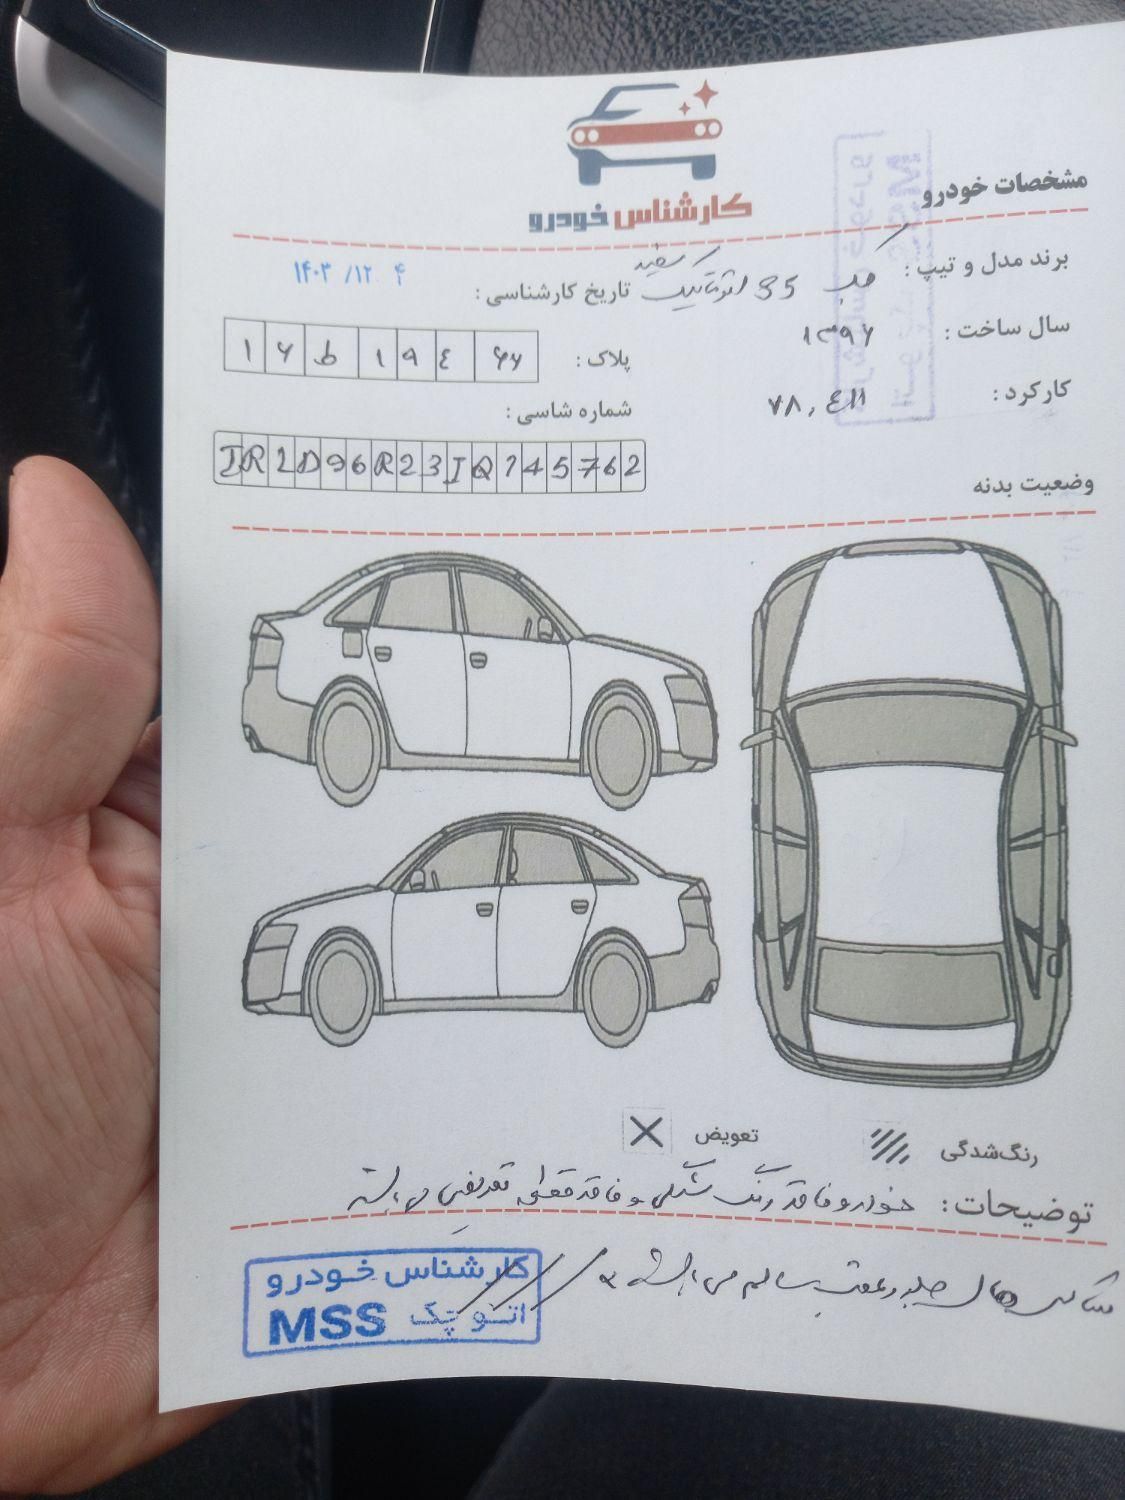 کارشناس خودرو
مشخصات خودرو
برند مدل و تیپ : جک S5 اتوماتیک سفید
تاریخ کارشناسی : ۱۴۰۳/۱۲.۰۴
سال ساخت : ۱۳۹۶
پلاک : ۱ ۶ ط ۱ ۹ ٤ ۶۶
کارکرد : ۷۸,٤۱۱
شماره شاسی :
IR1D96R23IQ145762
وضعیت بدنه
رنگ‌شدگی
تعویض
توضیحات : خودرو فاقد رنگ شدگی و فاقد قطعه تعویضی می باشد
شاسی های جلو و عقب سالم می باشد
کارشناس خودرو
اتو چک MSS